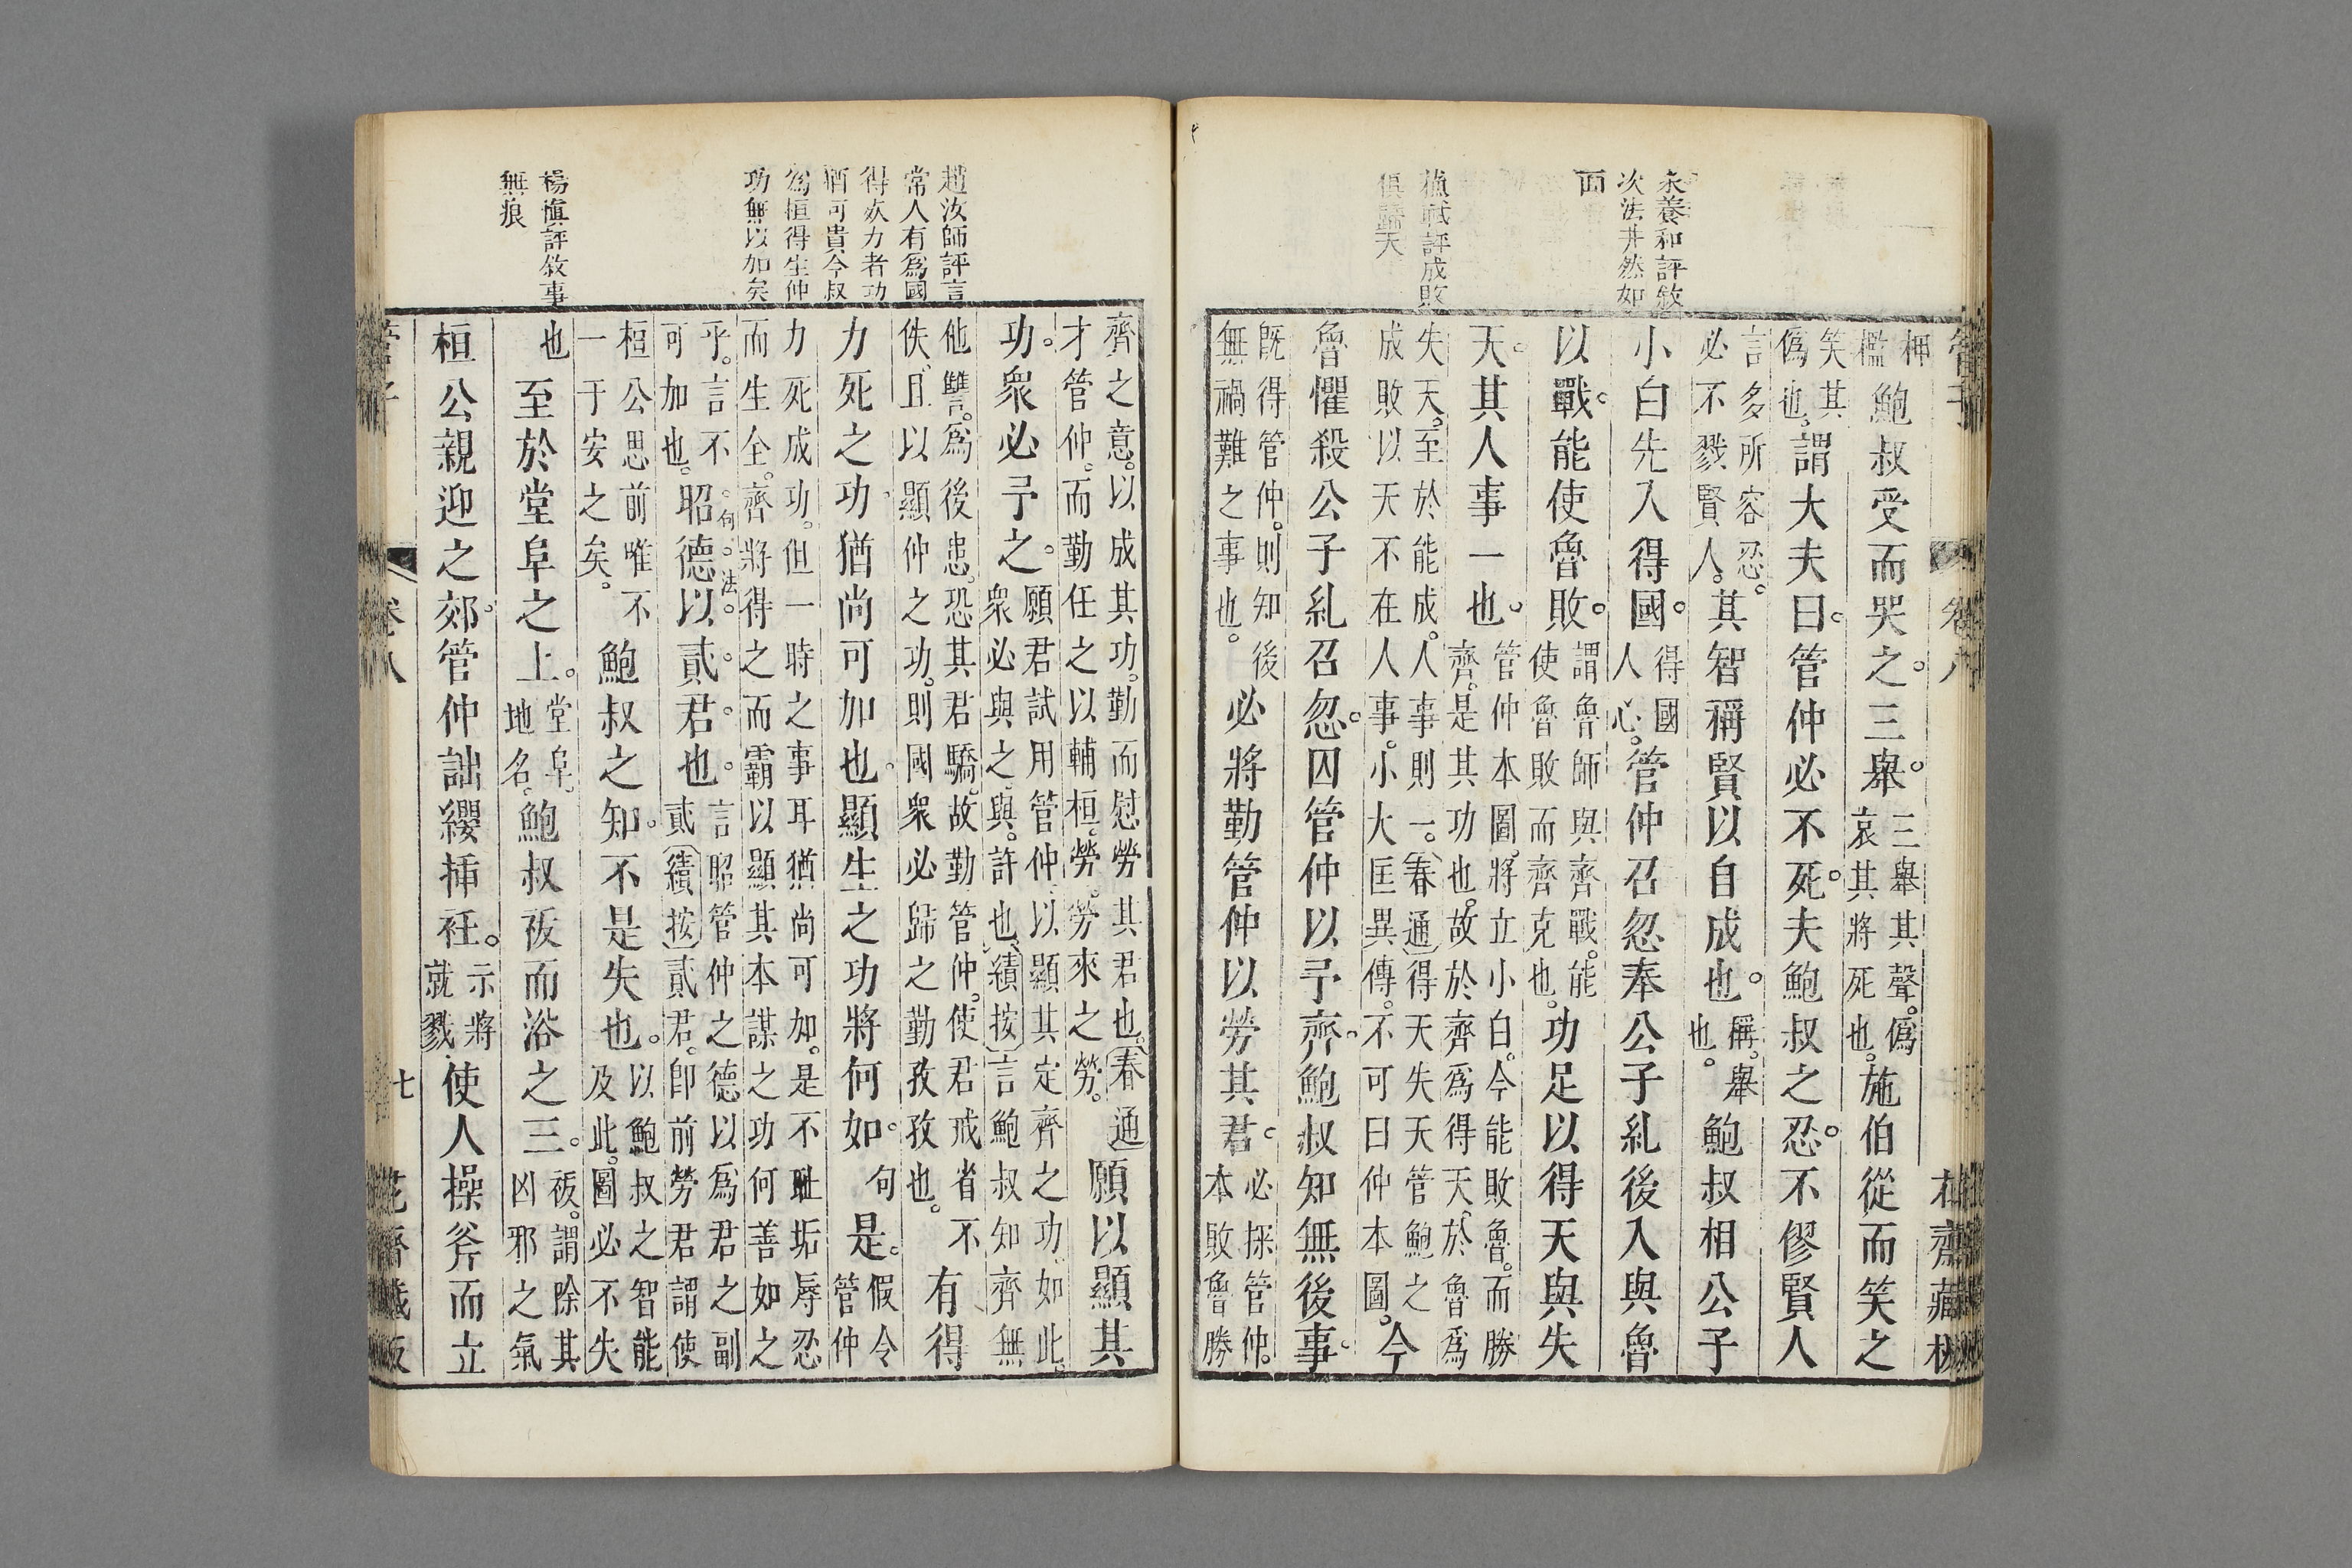 永養和評敘
次法井然如
画
評成敗
俱歸天
管子
卷八
花齋藏板
柙檻鮑叔受而哭之三舉三舉其聲僞哀其將死也施伯從而笑之
笑其僞也謂大夫曰管仲必不死夫鮑叔之忍不僇賢人
言多所容忍必不戮賢人其智稱賢以自成也稱舉也鮑叔相公子
小白先入得國得國人心管仲召忽奉公子糺後入與魯
以戰能使魯敗謂魯師與齊戰能使魯敗而齊克也功足以得天與失
天其人事一也管仲本圖將立小白今能敗魯而勝齊是其功也故於齊爲得天於魯爲
失天至於能成人事則一春通得天失天天管鮑之成敗以天不在人事小大匡異傳不可曰仲本圖今
魯懼殺公子糺召忽囚管仲以予齊鮑叔知無後事
既得管仲則知後無禍難之事也必將勤管仲以勞其君必採管仲本敗魯勝
趙汝師評言
常人有爲國
得效力者功
猶可貴今叔
爲桓得生仲
功無以加矣
楊愼評敘事
無痕
齊之意以成其功勤而慰勞其君也春通才管仲而勤任之以輔桓勞勞來之勞願以顯其
功衆必予之願君試用管仲以顯其定齊之功如此衆必與之與許也績按言鮑叔知齊無
他讐爲後患恐其君驕故勤管仲使君戒省不佚且以顯仲之功則國衆必歸之勤孜孜也有得
力死之功猶尚可加也顯生之功將何如句是假令管仲
力死成功但一時之事耳猶尚可加是不耻垢辱忍而生全齊將得之而霸以顯其本謀之功何善如之
乎言不可加也昭德以貳君也句法言昭管仲之德以爲君之副貳績按貳君卽前勞君謂使
桓公思前唯不一于安之矣鮑叔之知不是失也以鮑叔之智能及此圖必不失
也至於堂阜之上堂阜地名鮑叔祓而浴之三祓謂除其凶邪之氣
桓公親迎之郊管仲詘纓揷衽示將就戮使人操斧而立
管子
卷八
七
花齋藏板